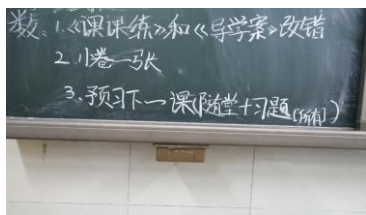 数:1.《课课练》和《导学案》改错
2.小卷一张
3.预习下一课(随堂+习题(所有))